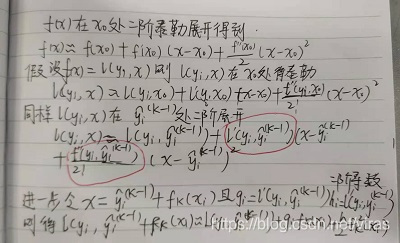 f(x) 在 x₀ 处二阶泰勒展开得到.
f(x) ≈ f(x₀) + f'(x₀) (x-x₀) + f''(x₀)/2 (x-x₀)²
假设 f(x) = l(yi, x) 则 l(yi, x) 在 x₀ 处泰勒
l(yi, x) ≈ l(yi, x₀) + l'(yi, x₀) (x-x₀) + l''(yi, x₀)/2! (x-x₀)²
同样 l(yi, x) 在 ŷi^(k-1) 处二阶展开
l(yi, x) ≈ l(yi, ŷi^(k-1)) + l'(yi, ŷi^(k-1)) (x-ŷi^(k-1))
+ l''(yi, ŷi^(k-1))/2! (x-ŷi^(k-1))²
二阶导数
进一步令 x = ŷi^(k-1) + fK(xi) 且 gi = l'(yi, ŷi^(k-1)) hi = l''(yi, ŷi^(k-1))
则得 l(yi, ŷi^(k-1) + fK(xi)) ≈ l(yi, ŷi^(k-1)) + gi fK(xi) +
https://blog.csdn.net/viras